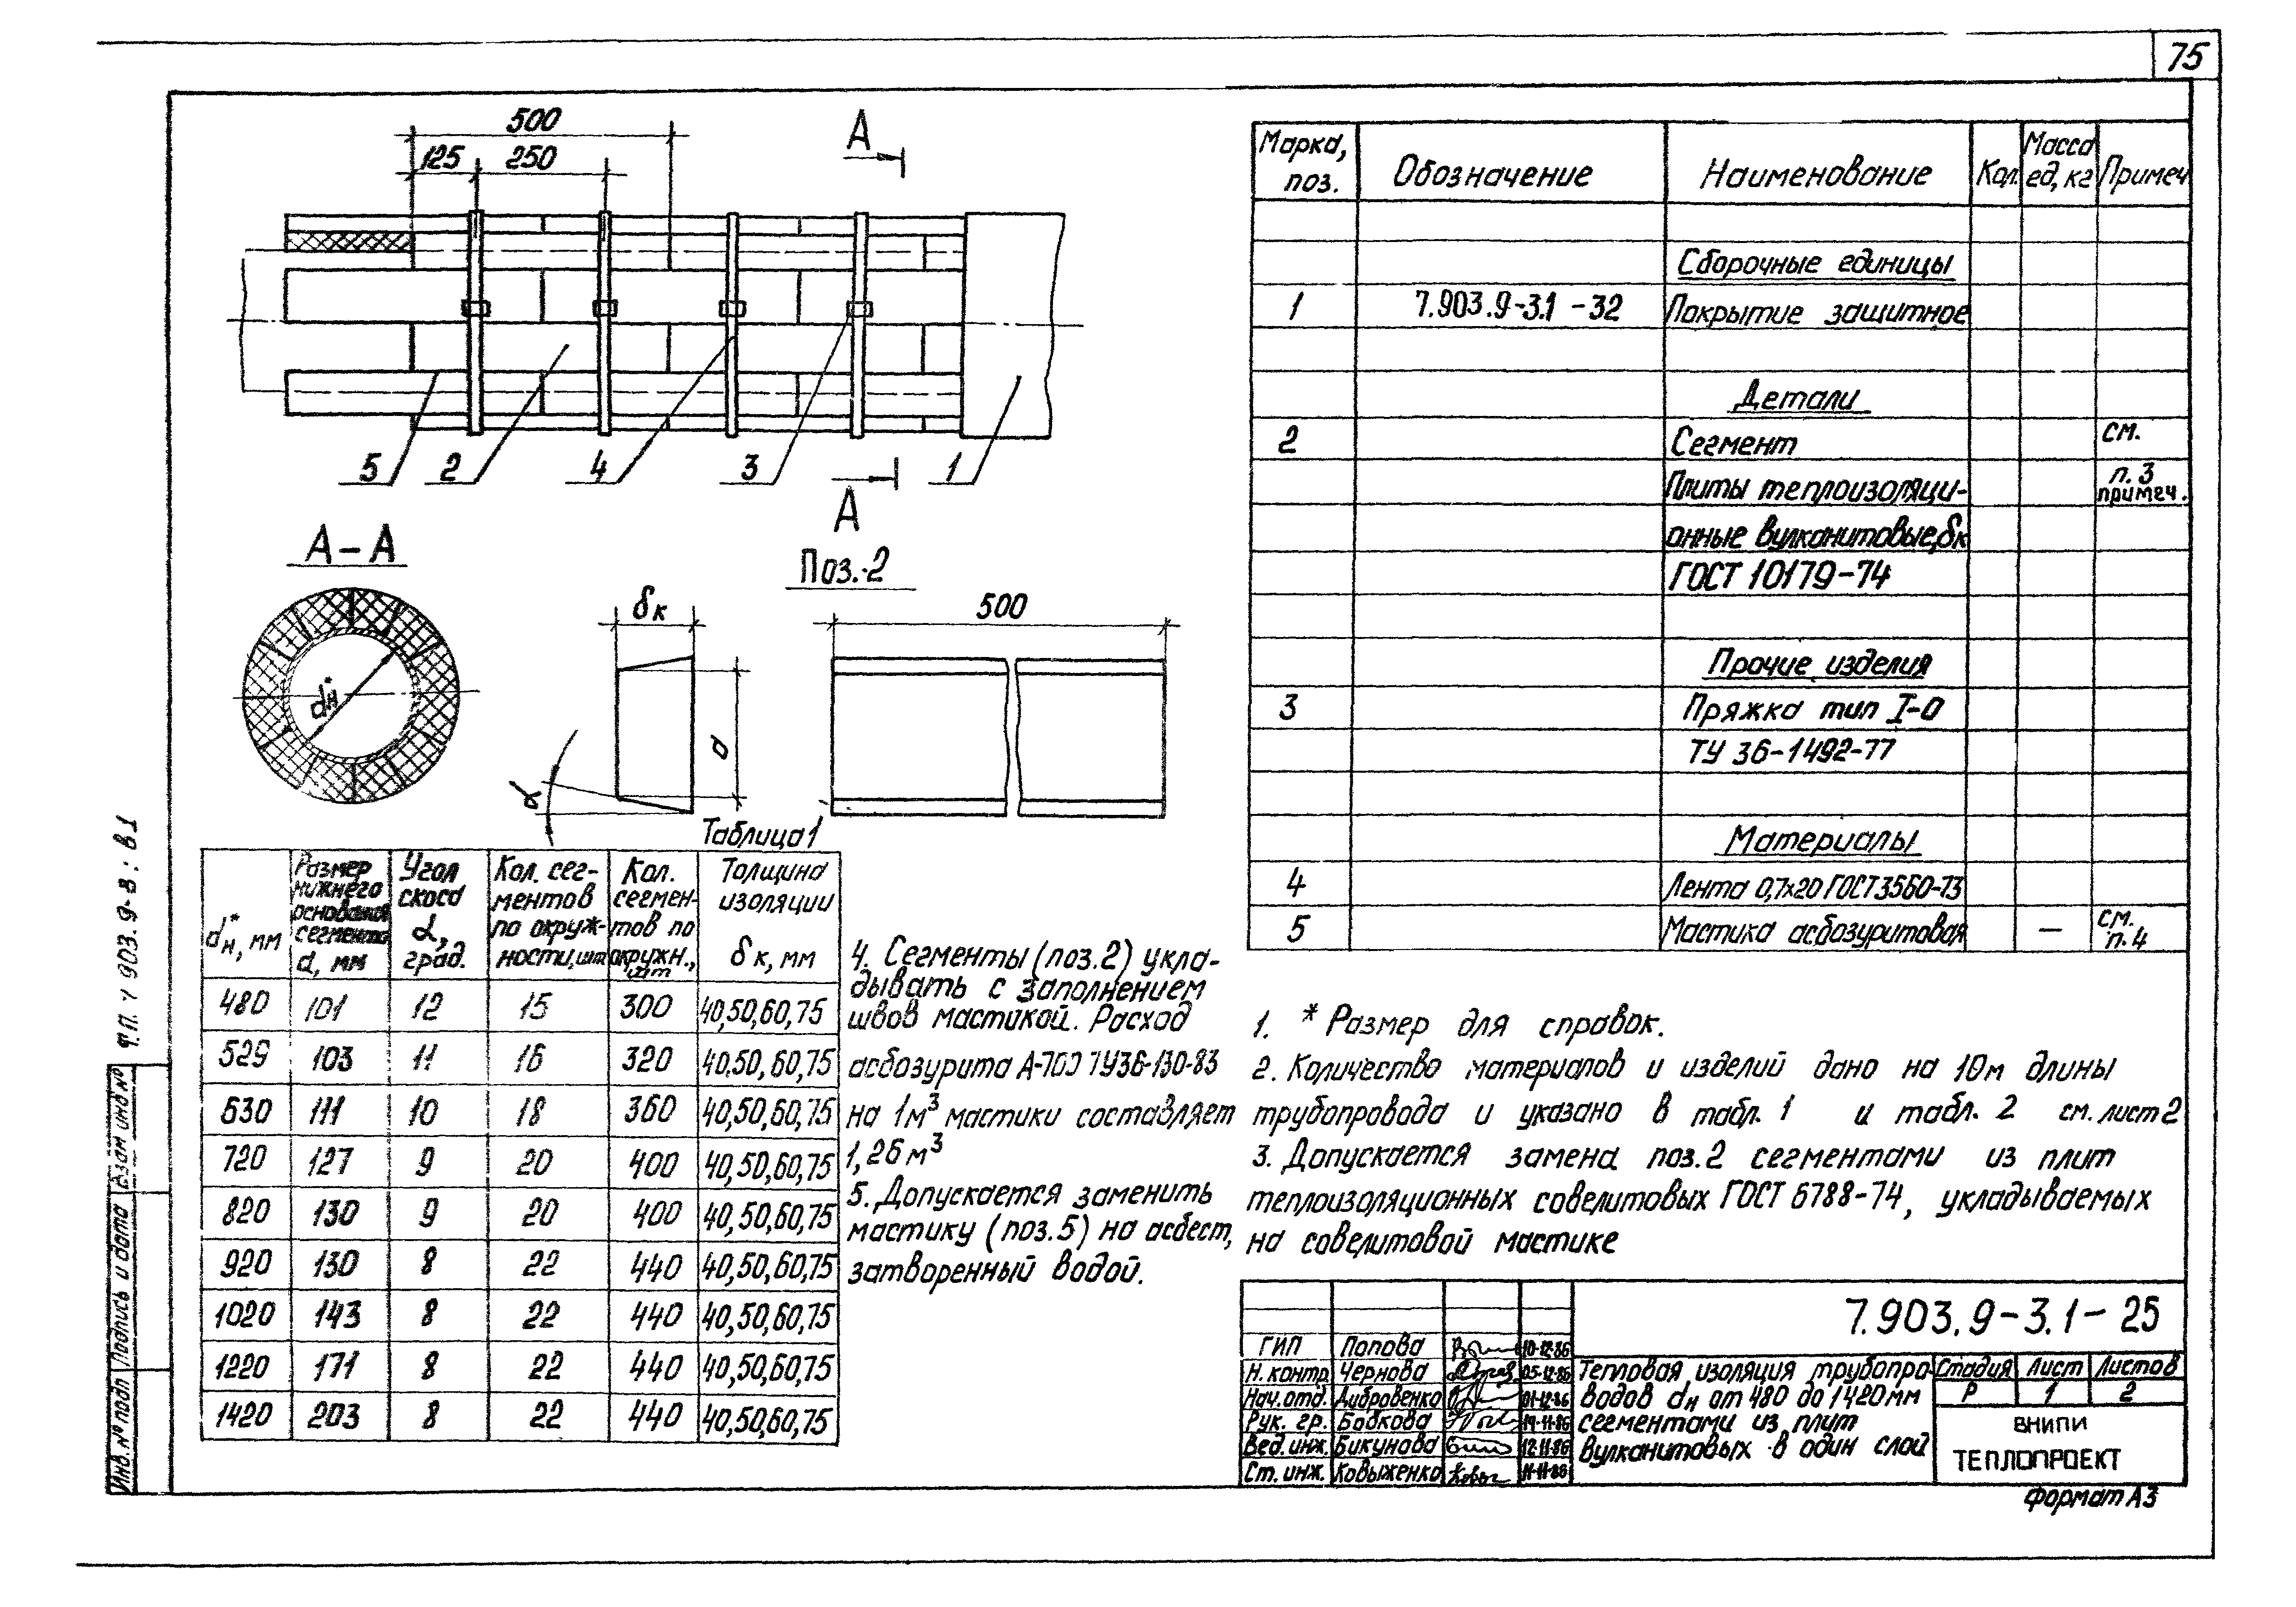 75
500
125 250
А
5 2 4 3 1
А
А-А
Поз.-2
dн*
δк
d
α
500
Марка, поз. Обозначение Наименование Кол. Масса ед, кг Примеч
Сборочные единицы
1 7.903.9-3.1 -32 Покрытие защитное
Детали
2 Сегмент см.
Плиты теплоизоляци- п.3 примеч.
онные вулканитовые, δк
ГОСТ 10179-74
Прочие изделия
3 Пряжка тип I-О
ТУ 36-1492-77
Материалы
4 Лента 0,7х20 ГОСТ 3560-73
5 Мастика асбозуритовая — см. п.4
Таблица 1
dн*, мм Размер нижнего основания сегмента d, мм Угол скоса α, град. Кол. сег-ментов по окруж-ности, шт Кол. сегмен-тов по окружн., шт Толщина изоляции δк, мм
480 101 12 15 300 40,50,60,75
529 103 11 16 320 40,50,60,75
630 111 10 18 360 40,50,60,75
720 127 9 20 400 40,50,60,75
820 130 9 20 400 40,50,60,75
920 130 8 22 440 40,50,60,75
1020 143 8 22 440 40,50,60,75
1220 171 8 22 440 40,50,60,75
1420 203 8 22 440 40,50,60,75
4. Сегменты (поз.2) укла-
дывать с заполнением
швов мастикой. Расход
асбозурита А-700 ТУ36-130-83
на 1м³ мастики составляет
1,26 м³
5. Допускается заменить
мастику (поз.5) на асбест,
затворенный водой.
1. * Размер для справок.
2. Количество материалов и изделий дано на 10м длины
трубопровода и указано в табл. 1 и табл. 2 см. лист 2
3. Допускается замена поз.2 сегментами из плит
теплоизоляционных совелитовых ГОСТ 6788-74, укладываемых
на совелитовой мастике
7.903.9-3.1-25
ГИП Попова 10-12-86
Н.контр. Чернова 05-12-86
Нач.отд. Дибровенко 01-12-86
Рук. гр. Бобкова 14-11-86
Вед.инж. Бикунова 12-11-86
Ст. инж. Ковыженко 11-11-86
Тепловая изоляция трубопро-
водов dн от 480 до 1420мм
сегментами из плит
вулканитовых в один слой
Стадия Лист Листов
Р 1 2
ВНИПИ
ТЕПЛОПРОЕКТ
Формат А3
Инв. № подл Подпись и дата Взам инв №